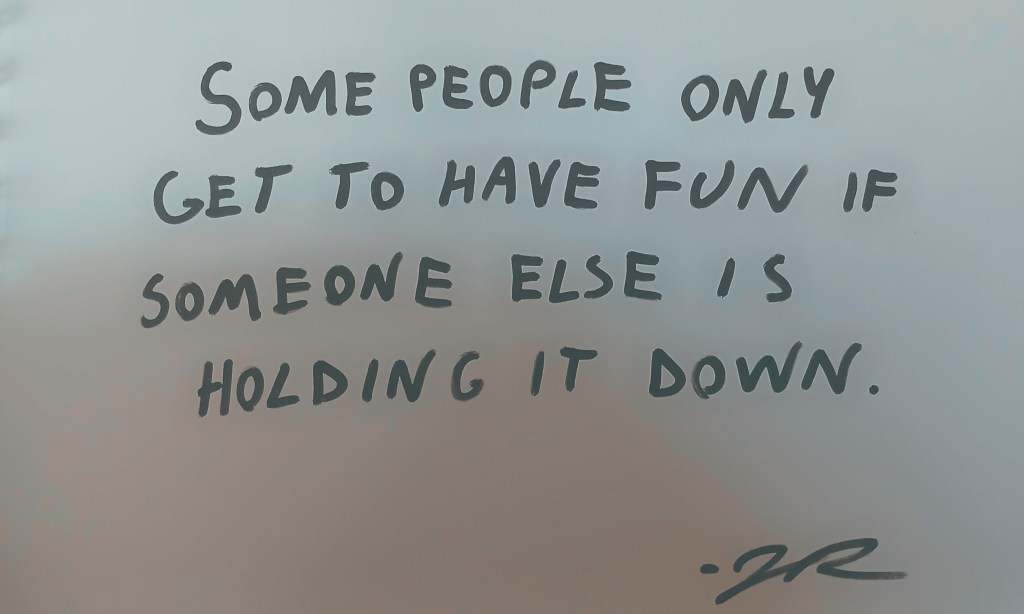 SOME PEOPLE ONLY
GET TO HAVE FUN IF
SOMEONE ELSE IS
HOLDING IT DOWN.
- JR